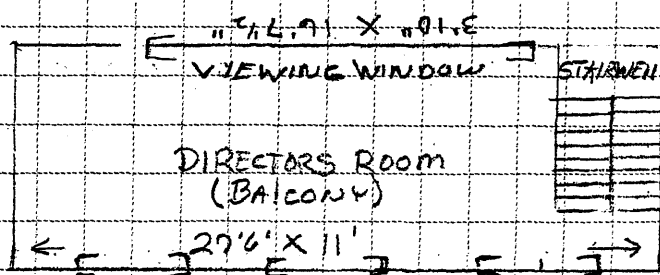 3'10" X 16'7½"
VIEWING WINDOW
STAIRWELL
DIRECTORS ROOM
(BALCONY)
27'6' X 11'